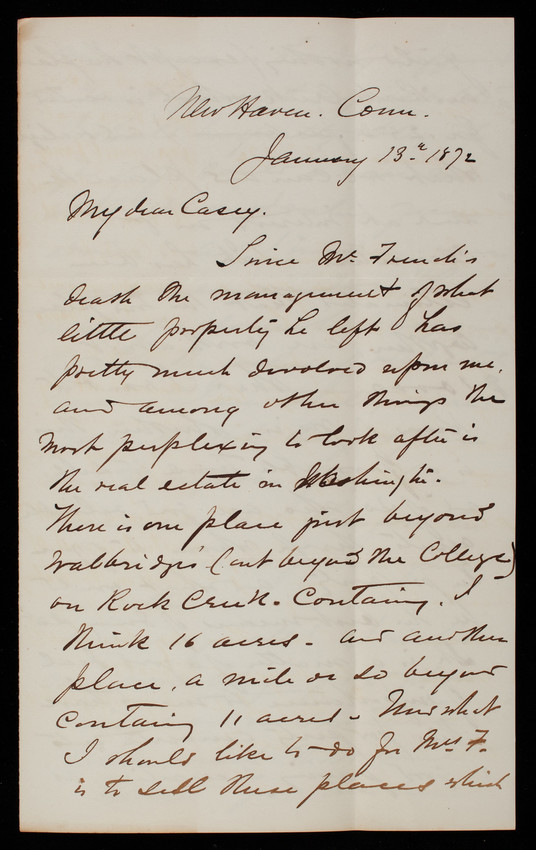 New Haven. Conn.
January 13th 1872
My dear Casey.
Since Mr. French's
death the management of what
little property he left has
pretty much devolved upon me,
and among other things the
most perplexing to look after is
the real estate in Washington.
There is one place just beyond
Walbridge's (out beyond the College)
on Rock Creek. Containing, I
think 16 acres - and another
place, a mile or so beyond
containing 11 acres - Now what
I should like to do for Mrs F.
is to sell these places which